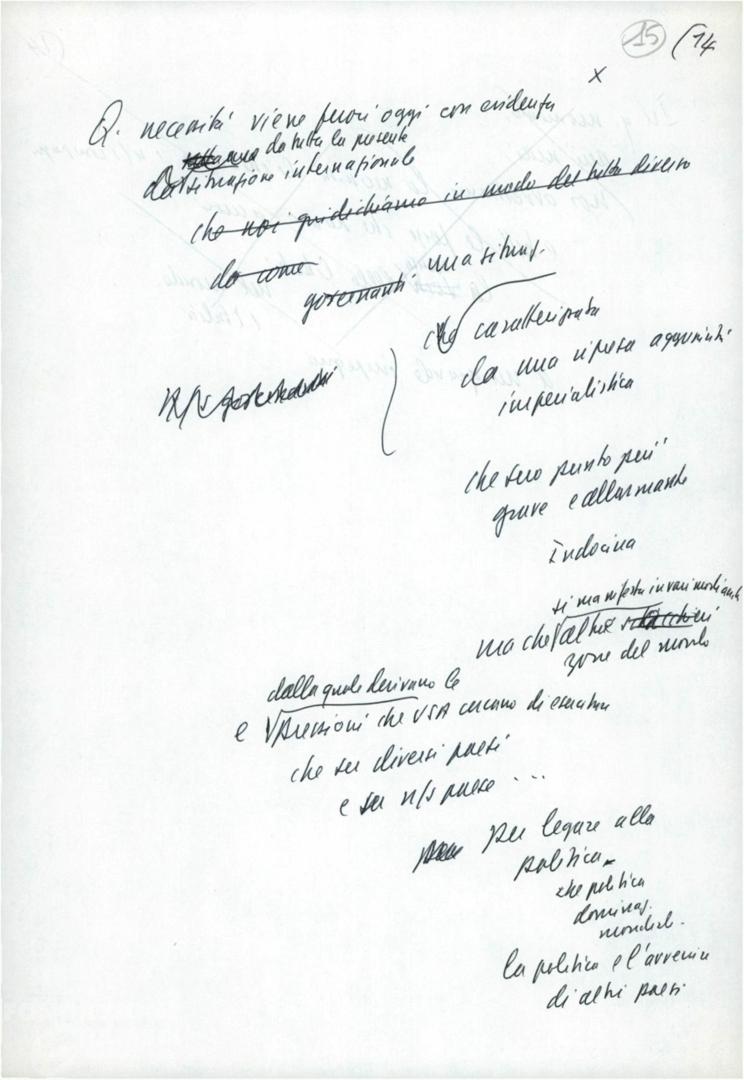 15 (14
x
Q. necessità viene fuori oggi con evidenza
da tutta la presente
situazione internazionale
che noi giudichiamo in modo del tutto diverso
da come
governanti una situaz.
che caratterizzata
da una ripresa aggressività
imperialistica
che suo punto più
grave e allarmante
Indocina
si manifesta in vari modi anche
ma che altre
zone del mondo
dalla quale derivano le
e pressioni che USA cercano di esercitare
che su diversi paesi
e su n/s paese ...
per legare alla
politica
politica
dominaz.
mondial.
la politica e l'avvenire
di altri paesi